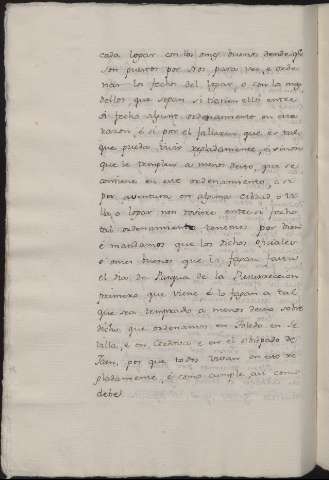 cada logar con los omes buenos dende que
son puestos por Nos para ver, e orde
nar los fechos del logar, o con la mayor
dellos que sepan si han en ello entre
si fecho algunt ordenamiento en esta
razon, e si por el fallaren que es tal
que pueda vivir regladamente, e
que se temple a menos desto, que se
contiene en este ordenamiento, e si
por aventura en alguna cibdad, o vi
lla, o logar non ovieren entre si fecho
tal ordenamiento tenemos por bien
e mandamos que los dichos oficiales
e omes buenos que lo fagan fasta
el dia de Pasqua de la Resureccion
primera que viene e lo fagan a tal
que sea temprado a menos desto sobre
dicho que ordenamos en Toledo en Se
villa, e en Cordova e en el obispado de
Jaen, por que todos vivan en esto re
gladamente, e como cumple asi como
debe